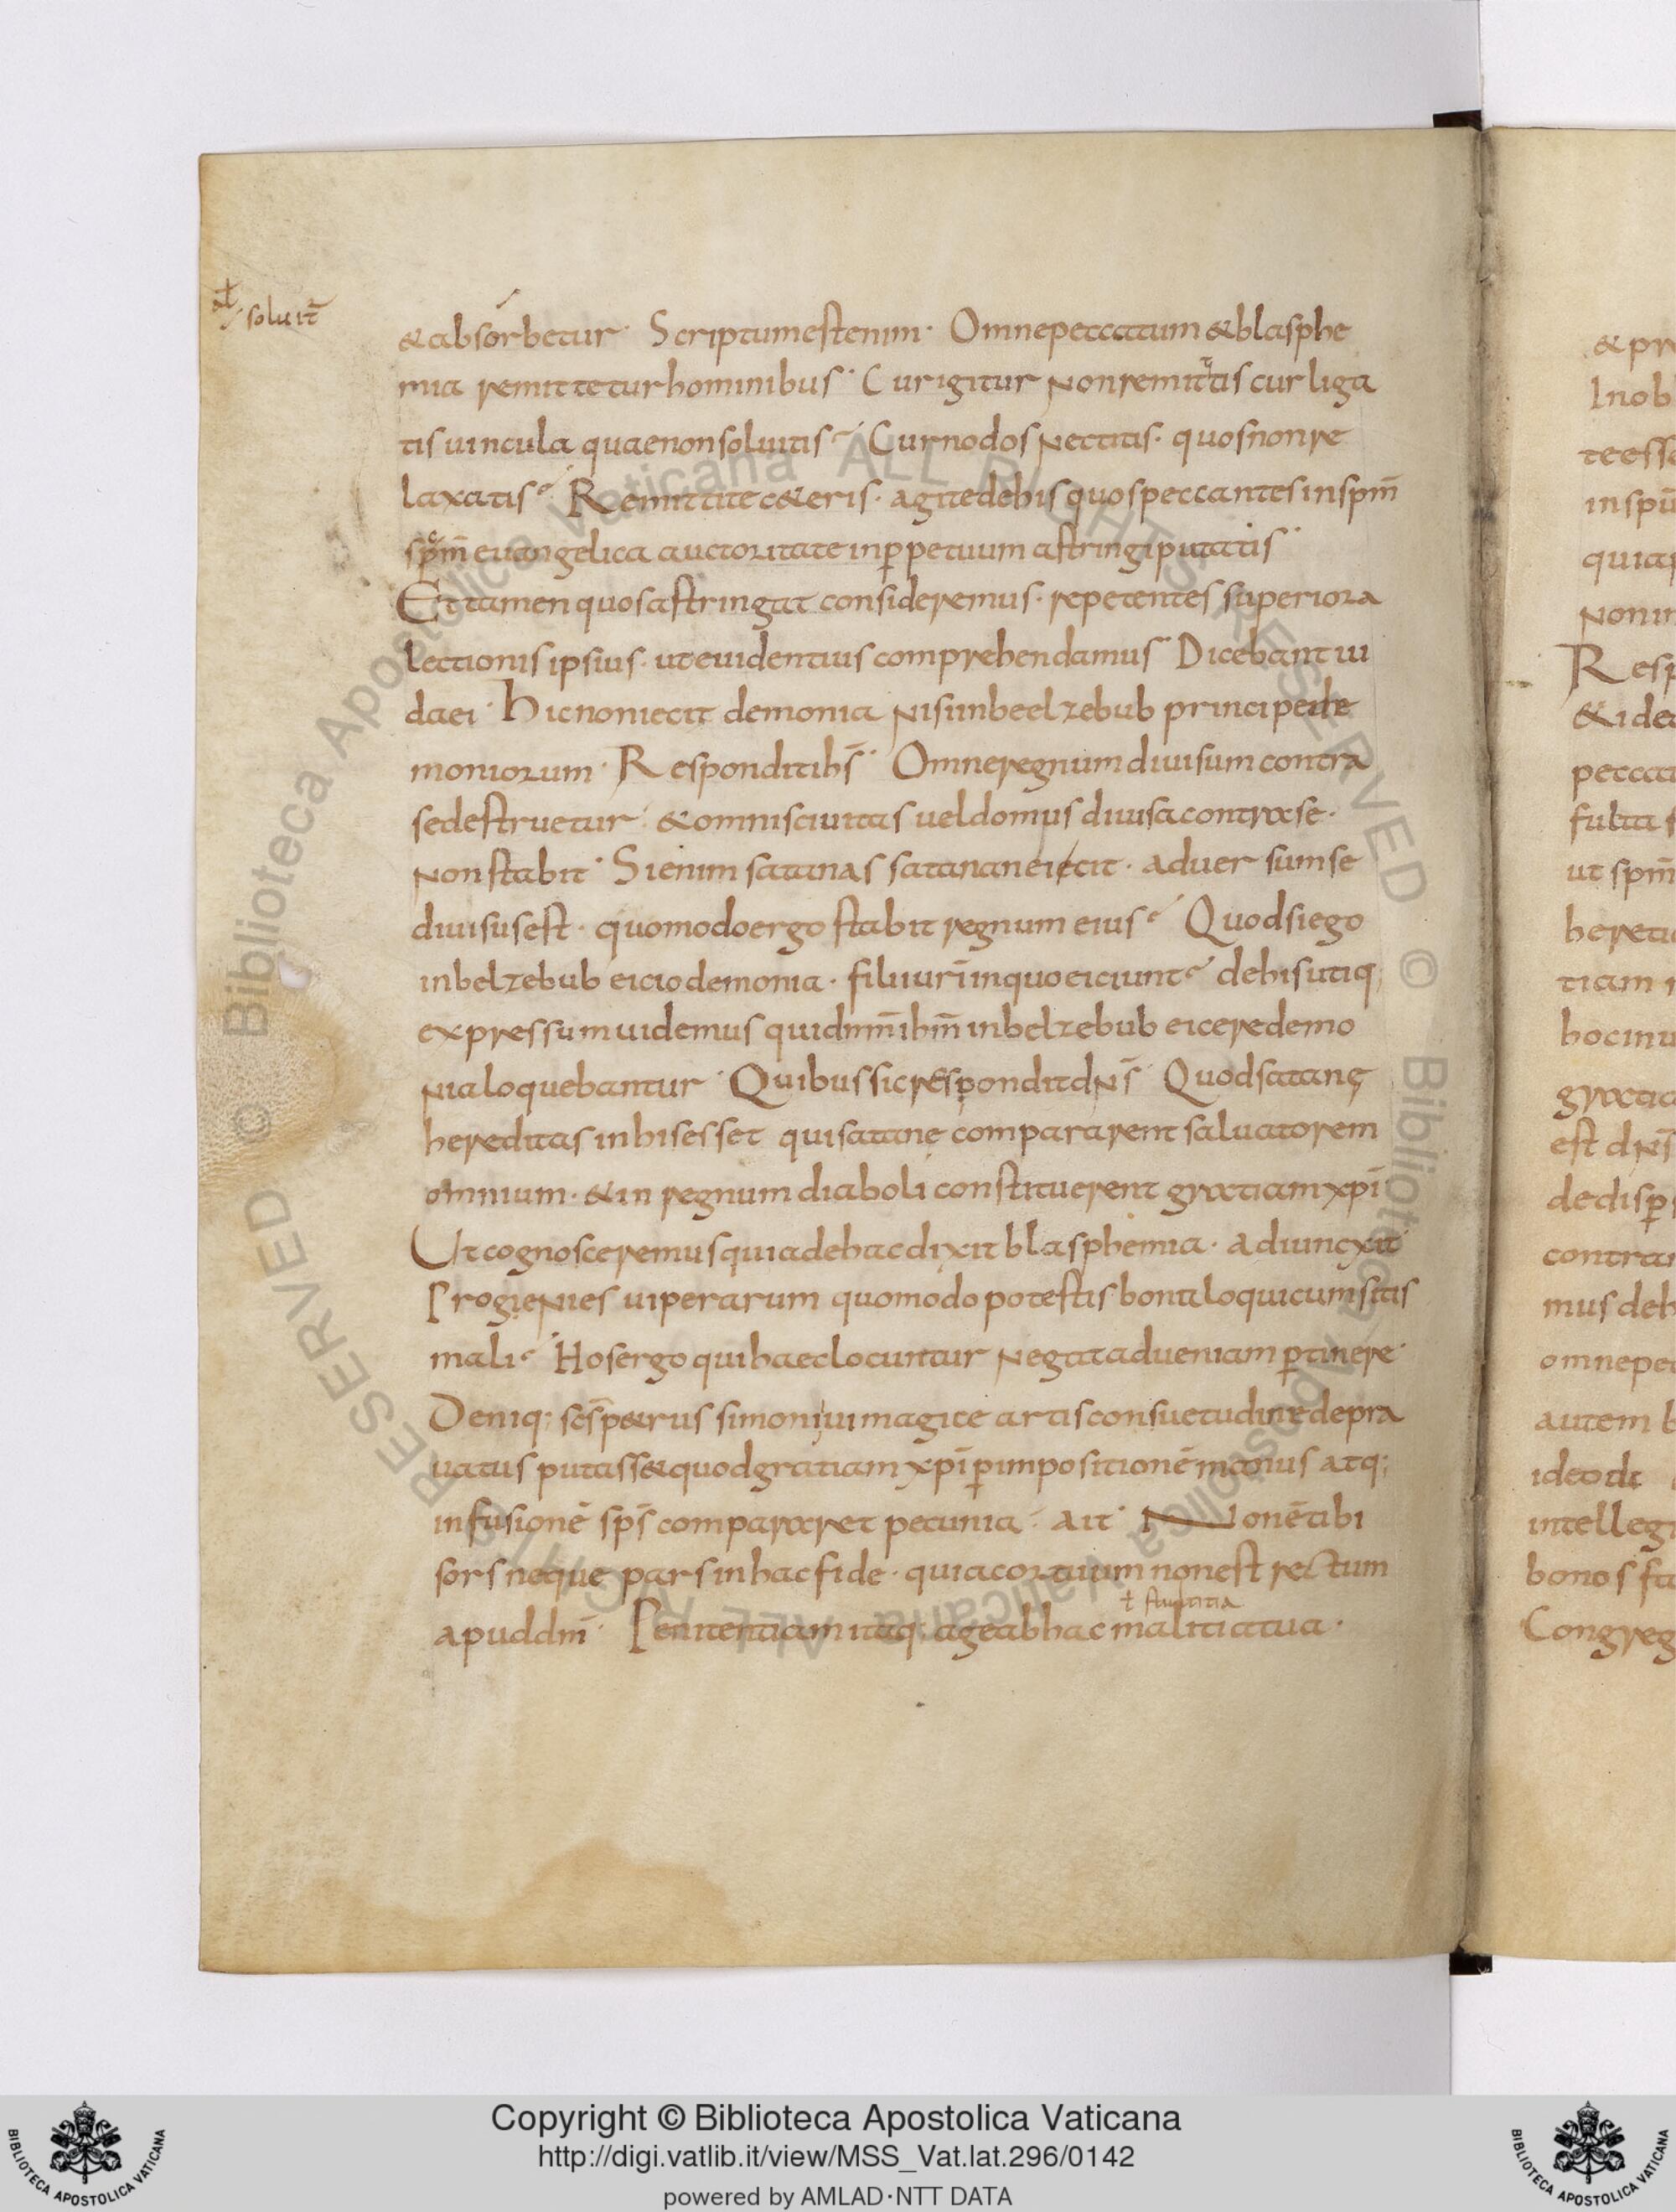 ał soluit̄
& absorbetur · Scriptum est enim · Omne peccatum & blasphe
mia remittetur hominibus · Cur igitur non remittitis cur liga
tis uincula quae non soluitis Cur nodos nectitis · quos non re
laxatis Remittite c&eris · agite de his quos peccantes in spm̄
spm̄ euangelica auctoritate in ꝑpetuum astringi putatis ·
Et tamen quos astringat consideremus · repetentes superiora
lectionis ipsius · ut euidentius comprehendamus Dicebant iu
daei · Hic non iecit demonia nisi in beelzebub principe de
moniorum · Respondit ihs̄ · Omne regnum diuisum contra
se destruetur · & omnis ciuitas uel domus diuisa contra se ·
non stabit · Si enim satanas satanan eiecit · aduersum se
diuisus est · quomodo ergo stabit regnum eius Quod si ego
in belzebub eicio demonia · filii uri̅ in quo eiciunt de his utiq;
expressum uidemus quid in belzebub eicere demo
nia loquebantur · Quibus sic respondit dns̄ · Quod satanę
hereditas in his esset qui satanę compararent saluatorem
omnium · & in regnum diaboli constituerent gratiam xpi̅
Ut cognosceremus quia de hac dixit blasphemia · adiuncxit
Progienies uiperarum quomodo potestis bona loqui cum sitis
mali Hos ergo qui haec locuntur negat ad ueniam ꝑtinere ·
Deniq; scs̄ p&rus simoni ui magice artis consuetudine depra
uatus putass& quod gratiam xpi̅ ꝑ impositionē manus atq;
infusionē sps̄ compararet pecunia · ait · Non ē tibi
sors neque pars in hac fide · quia cor tuum non est rectum
ł stultitia
apud dm̄ · Penitentiam itaq; age ab hac malitia tua ·
& pr
In ob
te ess
in spū
quia
non in
Resp
& idea
pecca
fulta s
ut spm̄
hereti
tiam
hoc inu
gratia
est dns̄
de disꝑ
contra
mus deh
omne pe
autem b
ideo de
intelleg
bonos fa
Congreg
© Biblioteca Apostolica Vaticana ALL RIGHTS RESERVED
© Biblioteca Apostolica Vaticana ALL RIGHTS RESERVED
BIBLIOTECA APOSTOLICA VATICANA
Copyright © Biblioteca Apostolica Vaticana
http://digi.vatlib.it/view/MSS_Vat.lat.296/0142
powered by AMLAD·NTT DATA
BIBLIOTECA APOSTOLICA VATICANA